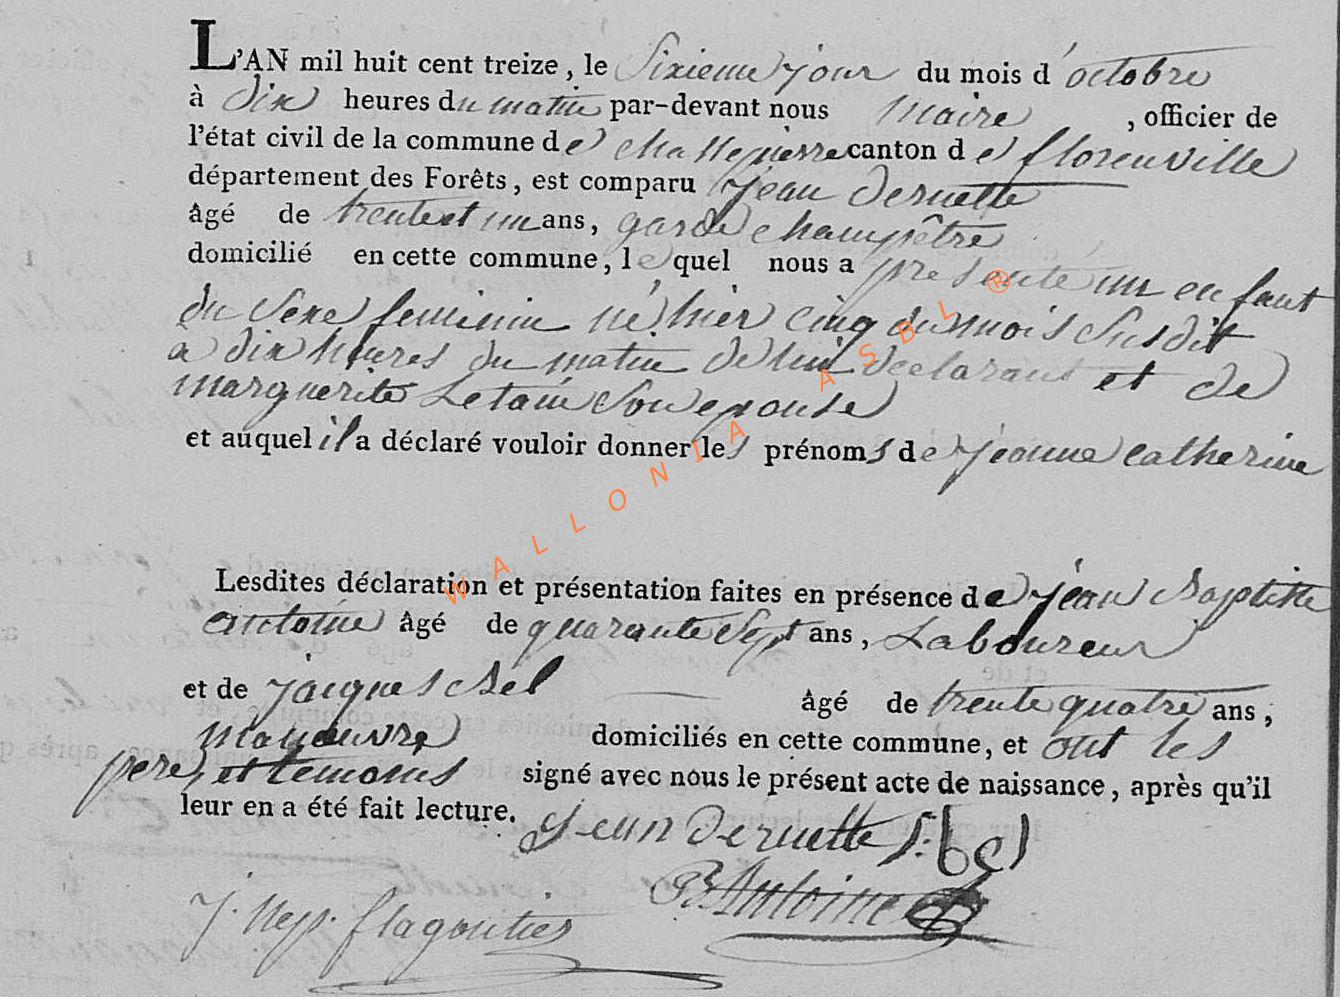 L'AN mil huit cent treize, le Sixieme jour du mois d'octobre
à dix heures du matin par-devant nous Maire, officier de
l'état civil de la commune de chassepierre canton de florenville
département des Forêts, est comparu jean deruette
âgé de trente et un ans, garde champêtre
domicilié en cette commune, lequel nous a presenté un enfant
du Sexe feminin né hier cinq du mois Susdit
a dix heures du matin de lui declarant et de
marguerite Letain Son epouse
et auquel il a déclaré vouloir donner les prénoms de jeanne catherine
Lesdites déclaration et présentation faites en présence de jean Baptiste
antoine âgé de quarante Sept ans, Laboureur
et de jacques Bel âgé de trente quatre ans,
manœuvre domiciliés en cette commune, et ont les
pere, et temoins signé avec nous le présent acte de naissance, après qu'il
leur en a été fait lecture.
Jean deruette J. bel
JB Antoine
J. Nep. flagontier
WALLONIA ASBL ®